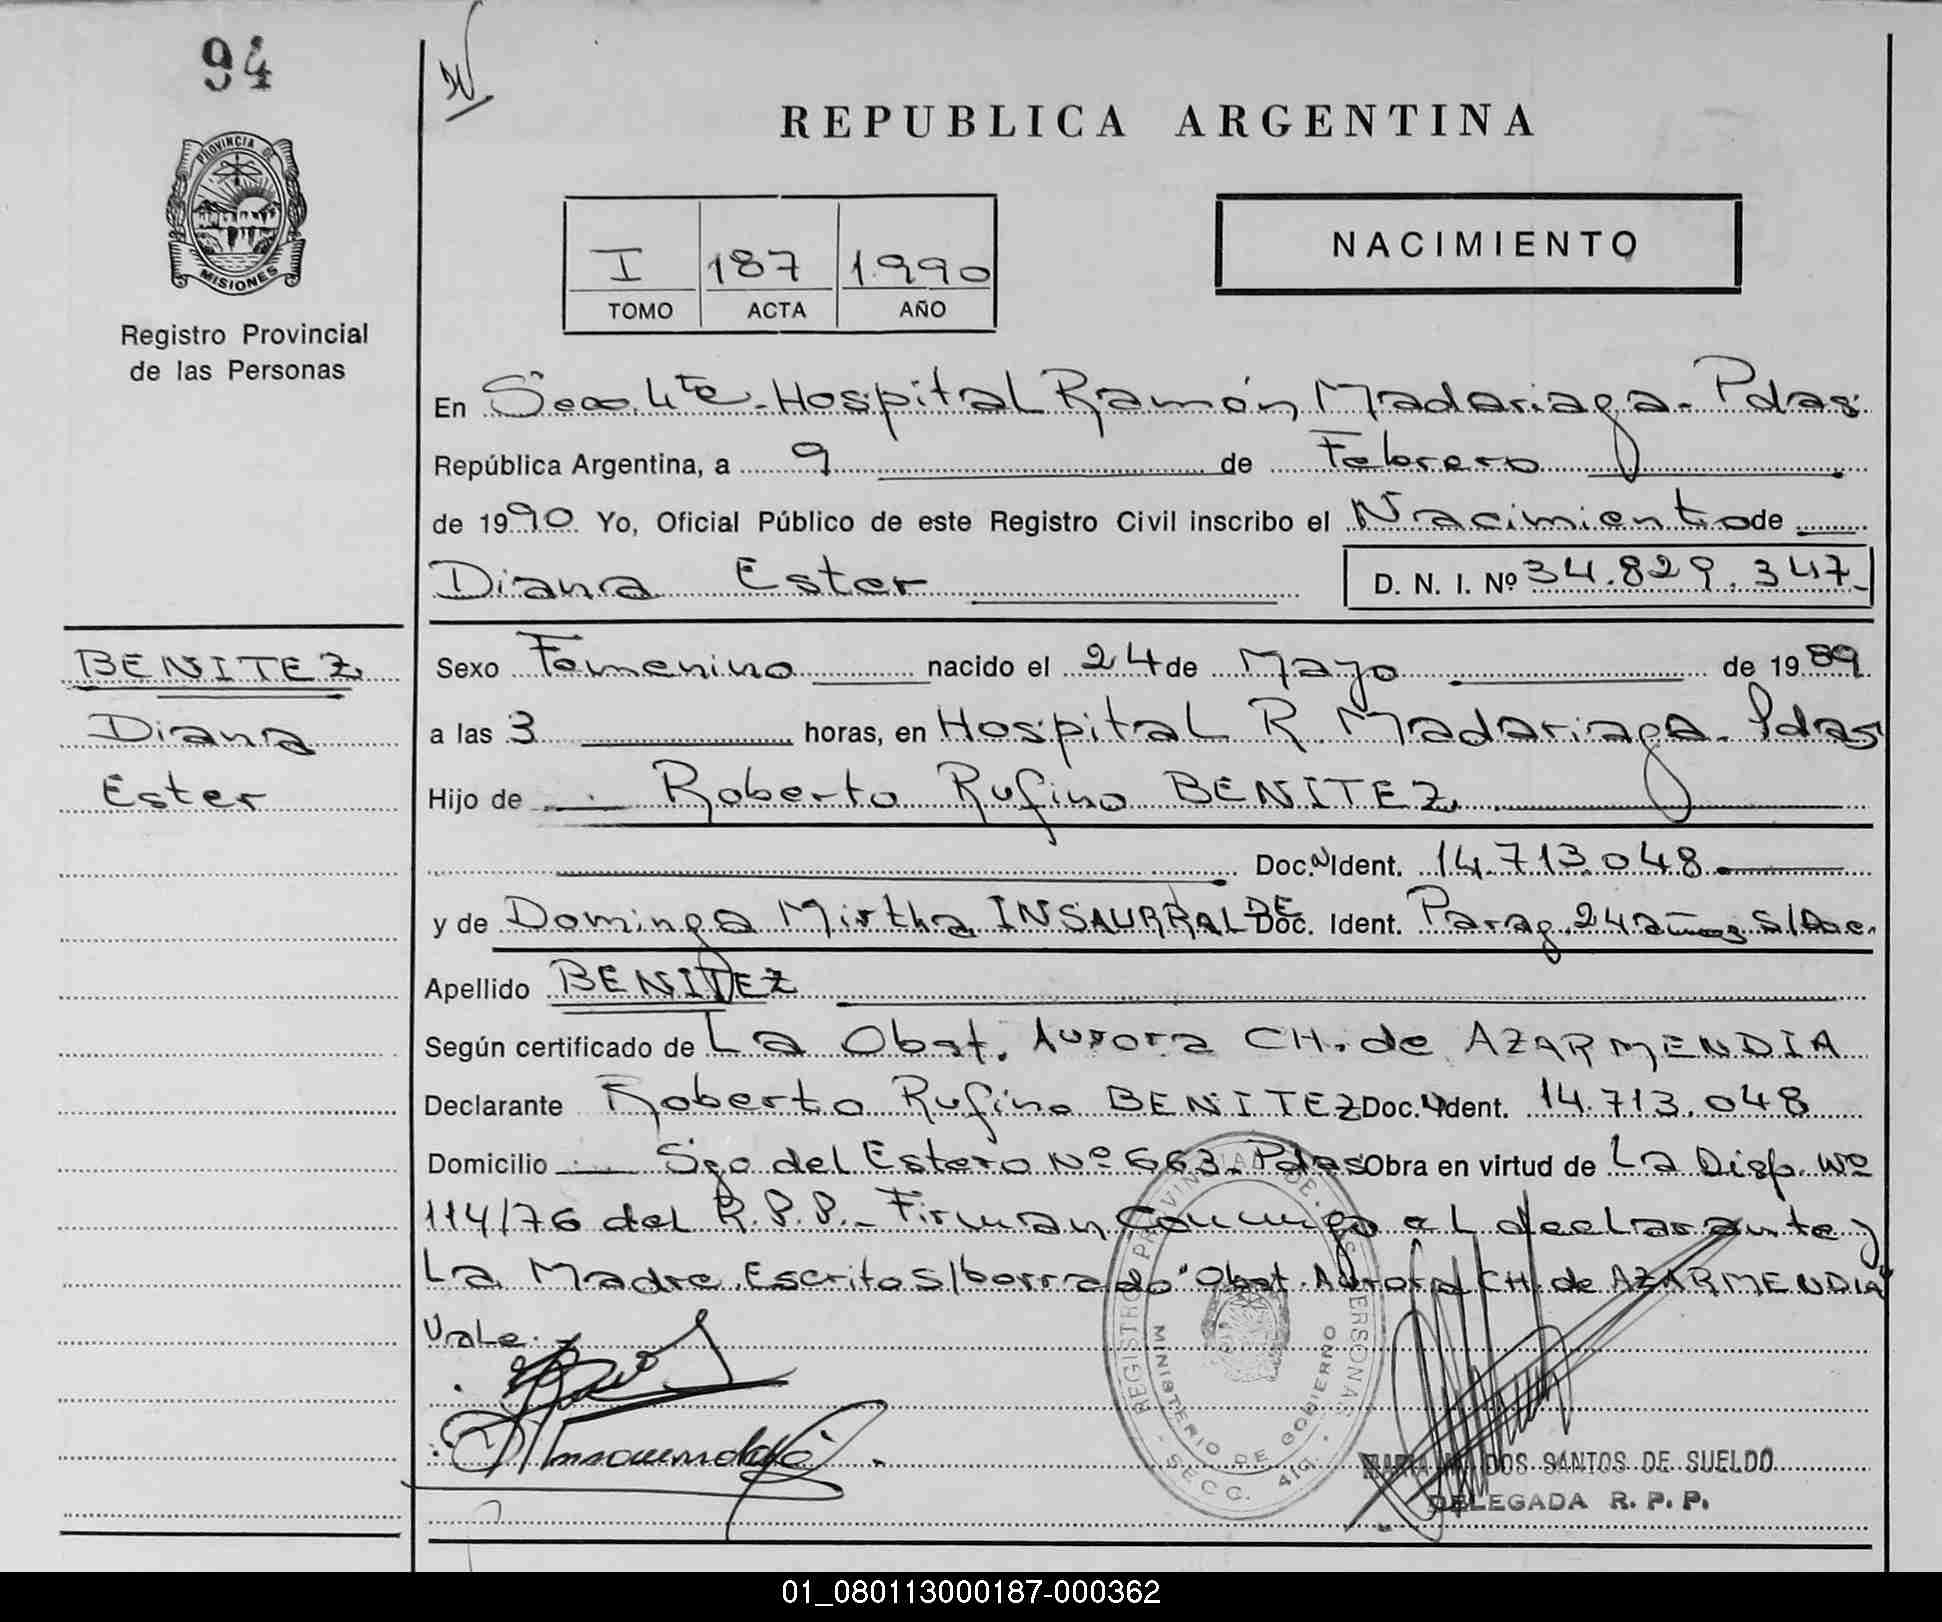 94
PROVINCIA DE
MISIONES
Registro Provincial
de las Personas
REPUBLICA ARGENTINA
I 187 1.990
TOMO ACTA AÑO
NACIMIENTO
En Secc. 4ta - Hospital Ramón Madariaga - Pdas
República Argentina, a 9 de Febrero
de 1990 Yo, Oficial Público de este Registro Civil inscribo el Nacimiento de
Diana Ester D. N. I. Nº 34.829.347-
BENITEZ
Diana
Ester
Sexo Femenino nacido el 24 de Mayo de 1989
a las 3 horas, en Hospital R. Madariaga - Pdas
Hijo de Roberto Rufino BENITEZ
Doc. N Ident. 14.713.048
y de Dominga Mirtha INSAURRALDE Doc. Ident. Parag. 24 años S/Doc.
Apellido BENITEZ
Según certificado de La Obst. Aurora CH. de AZARMENDIA
Declarante Roberto Rufino BENITEZ Doc. Ident. 14.713.048
Domicilio Sgo del Estero Nº 663 - Pdas Obra en virtud de La Disp. Nº
114/76 del R.P.P. - Firman conmigo el declarante y
La Madre. Escrito s/borrado "Obst. Aurora CH. de AZARMENDIA"
Vale.
REGISTRO PROVINCIAL DE LAS PERSONAS
MINISTERIO DE GOBIERNO
SECC. 4ta.
DOS SANTOS DE SUELDO
DELEGADA R. P. P.
01_080113000187-000362